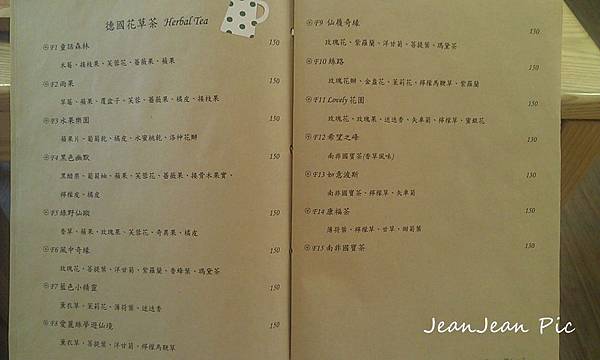 德國花草茶 Herbal Tea
F1 童話森林 150
木莓、接枝果、芙蓉花、薔薇果、蘋果
F2 雨果 150
草莓、蘋果、覆盆子、芙蓉、薔薇果、橘皮、接枝果
F3 水果樂園 150
蘋果片、葡萄乾、橘皮、水蜜桃乾、洛神花瓣
F4 黑色幽默 150
黑醋栗、葡萄柚、蘋果、芙蓉花、薔薇果、接骨木果實、
檸檬皮、橘皮
F5 綠野仙蹤 150
香草、蘋果、玫瑰果、芙蓉花、奇異果、橘皮
F6 風中奇緣 150
玫瑰花、菩提葉、洋甘菊、紫羅蘭、香蜂葉、瑪黛茶
F7 藍色小精靈 150
薰衣草、茉莉花、薄荷葉、迷迭香
F8 愛麗絲夢遊仙境 150
薰衣草、菩提葉、洋甘菊、檸檬馬鞭草
F9 仙履奇緣 130
玫瑰花、紫羅蘭、洋甘菊、菩提葉、瑪黛茶
F10 絲路 150
玫瑰花瓣、金盞花、茉莉花、檸檬馬鞭草、紫羅蘭
F11 Lovely 花園 150
玫瑰花、玫瑰果、迷迭香、矢車菊、檸檬草、蜜銀花
F12 希望之峰 130
南非國寶茶(香草風味)
F13 如意波斯 130
南非國寶茶、檸檬草、矢車菊
F14 康福茶 150
薄荷葉、檸檬草、甘草、甜菊葉
F15 南非國寶茶 130
JeanJean Pic